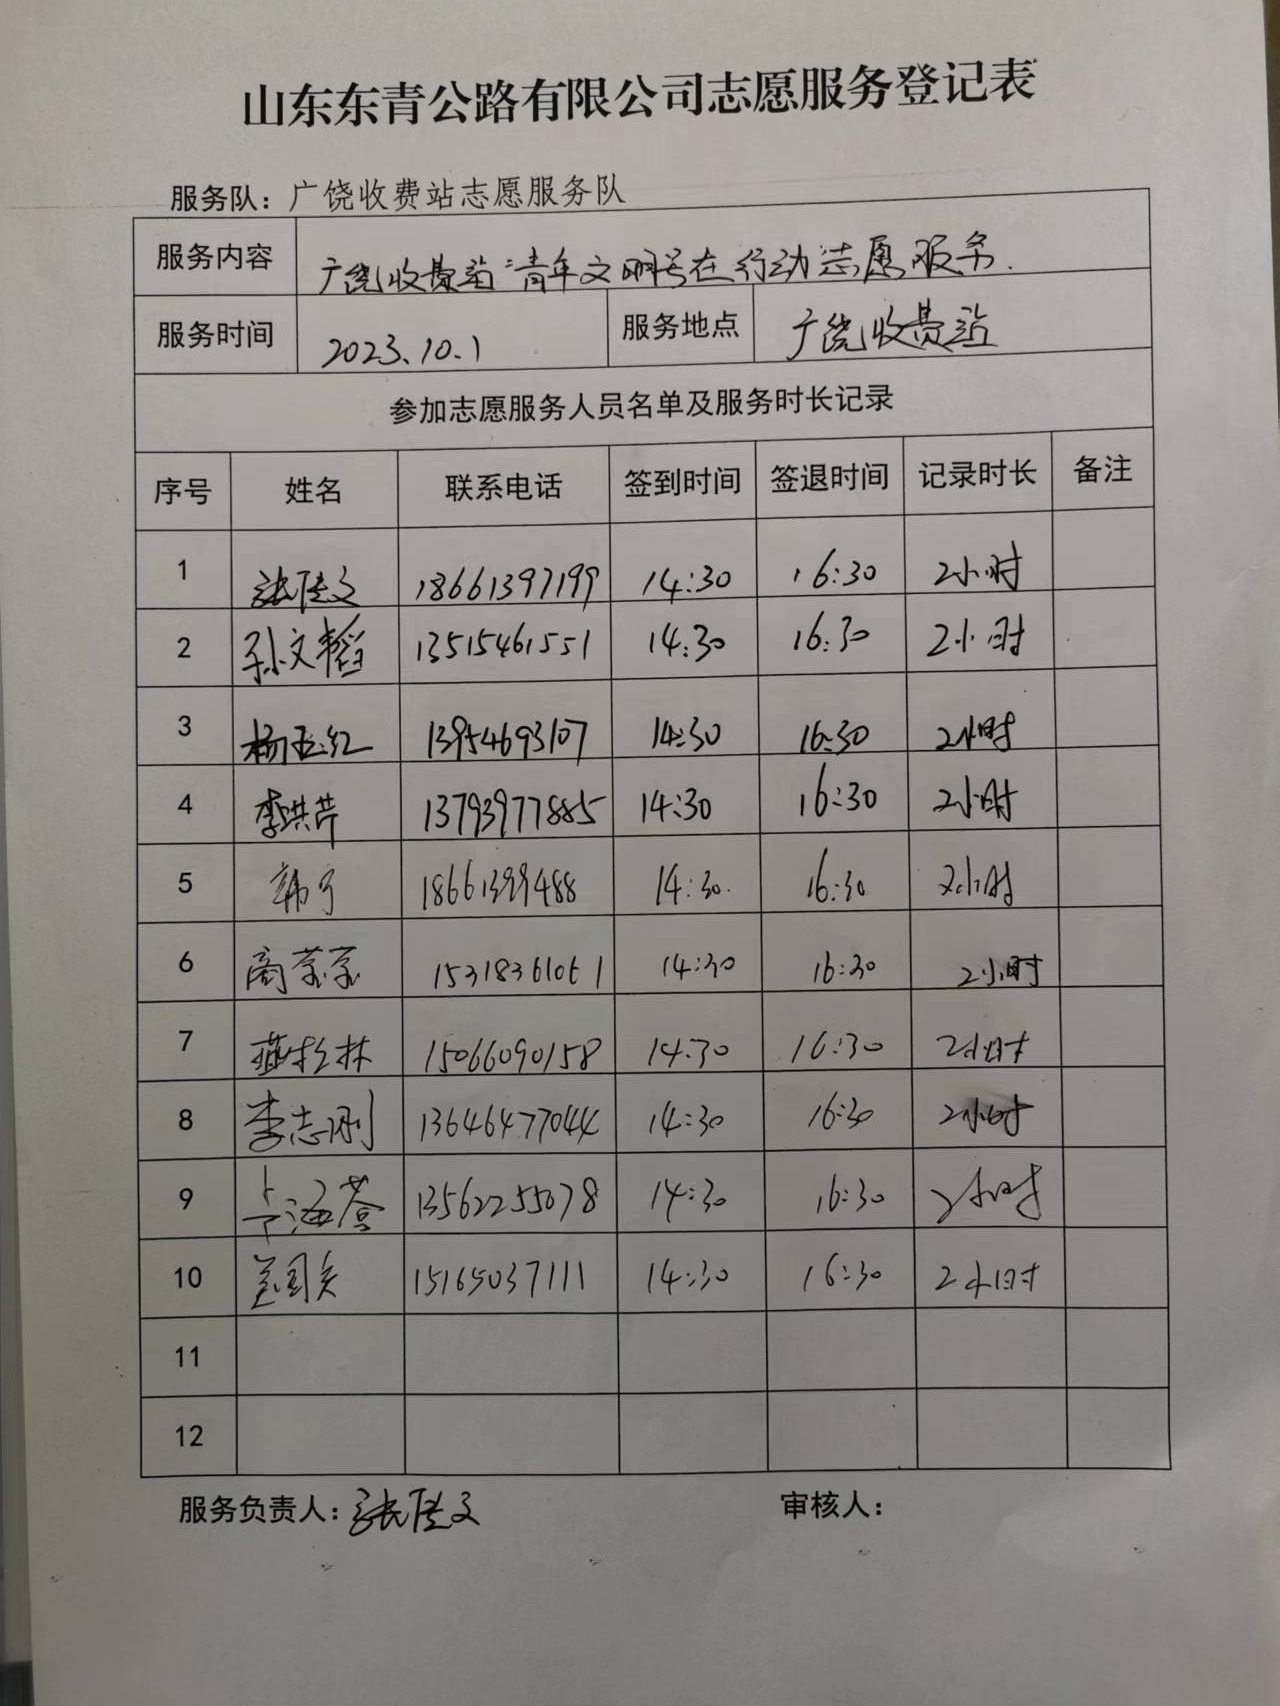 山东东青公路有限公司志愿服务登记表
服务队：广饶收费站志愿服务队
服务内容 广饶收费站“青年文明号在行动志愿服务.
服务时间 2023.10.1 服务地点 广饶收费站
参加志愿服务人员名单及服务时长记录
序号 姓名 联系电话 签到时间 签退时间 记录时长 备注
1 18661397199 14:30 16:30 2小时
2 孙文韬 13515461551 14:30 16:30 2小时
3 杨玉红 13954693107 14:30 16:30 2小时
4 李洪芹 13793977885 14:30 16:30 2小时
5 韩宁 18661399488 14:30 16:30 2小时
6 商 15318361061 14:30 16:30 2小时
7 燕松林 15066090158 14:30 16:30 2小时
8 李志刚 13646477044 14:30 16:30 2小时
9 13562255078 14:30 16:30 2小时
10 15165037111 14:30 16:30 2小时
11
12
服务负责人： 审核人：